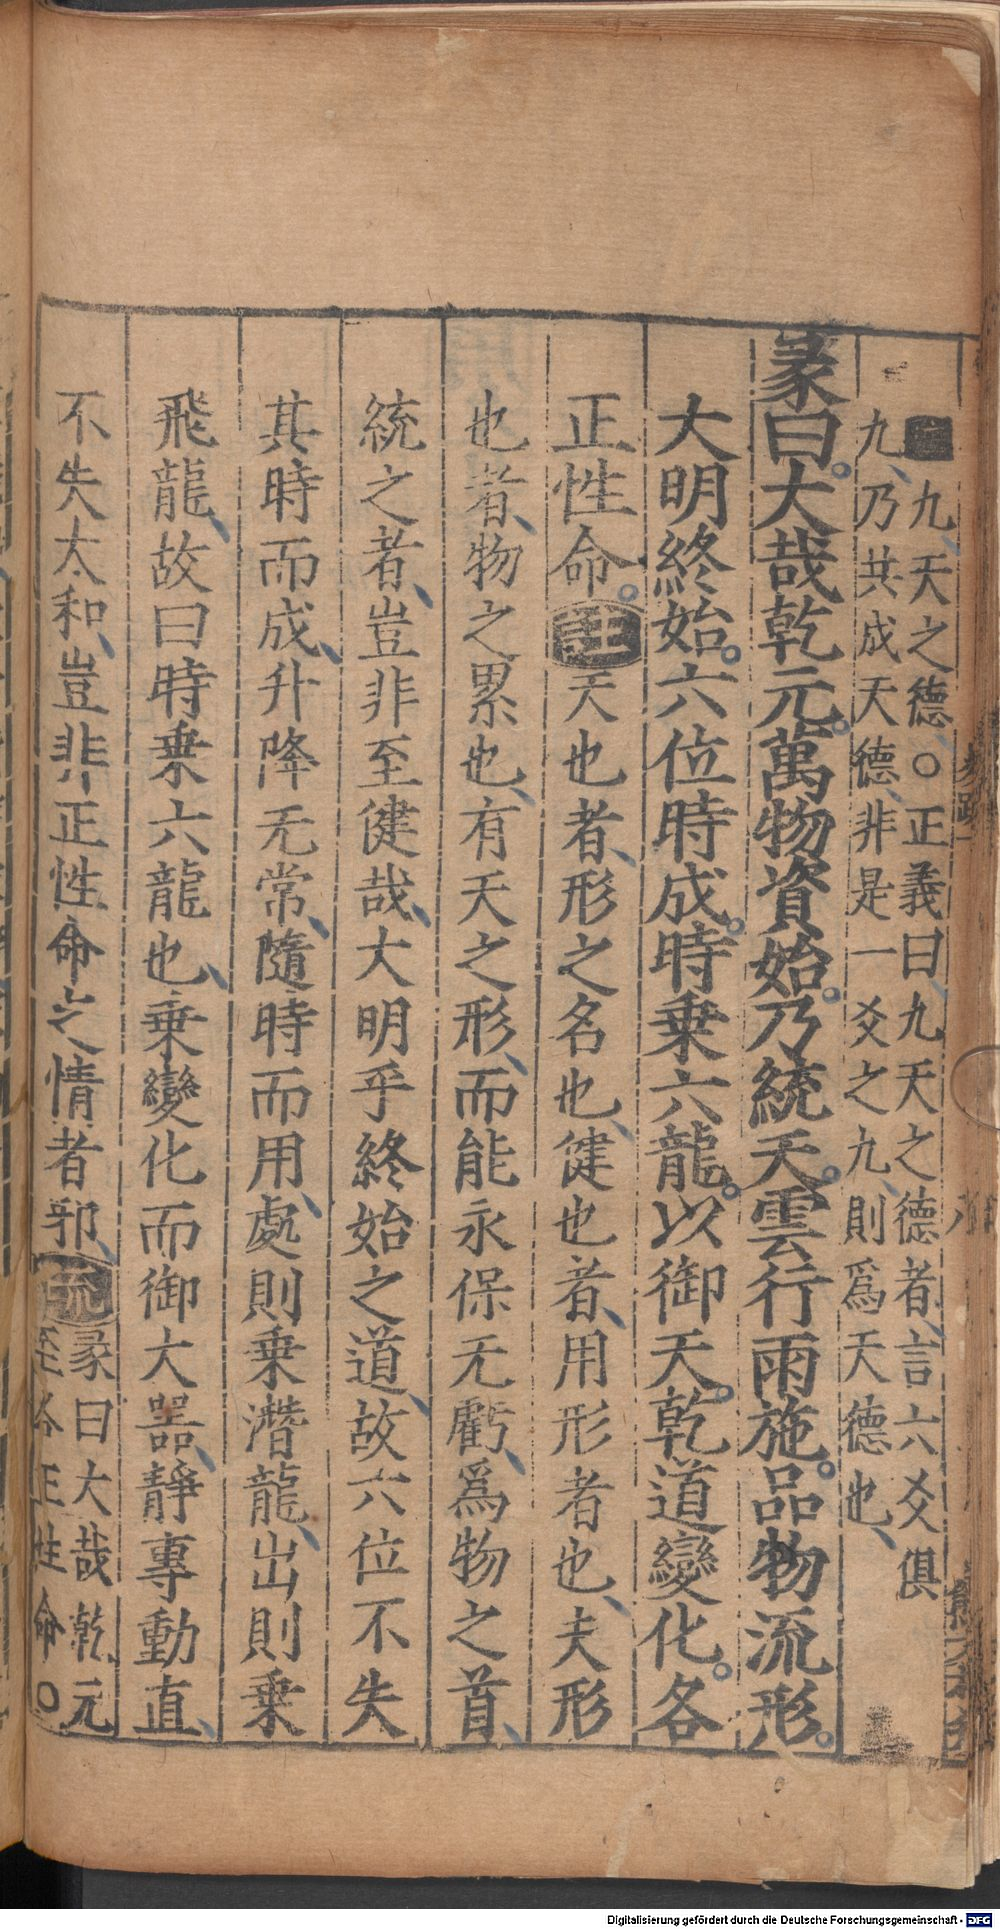 九、天之德、○正義曰、九天之德者、言六爻俱
九、乃共成天德、非是一爻之九、則爲天德也、
彖曰。大哉乾元。萬物資始。乃統天。雲行雨施。品物流形。
大明終始。六位時成。時乗六龍。以御天。乾道變化。各
正性命。註天也者、形之名也、健也者、用形者也、夫形
也者、物之累也、有天之形、而能永保无虧、爲物之首、
統之者、豈非至健哉、大明乎終始之道、故六位不失
其時而成、升降无常、隨時而用、處則乗潛龍、出則乗
飛龍、故曰時乗六龍也、乗變化而御大噐、靜專動直、
不失太和、豈非正性命之情者邪、疏彖曰大哉乾元
至各正性命○
Digitalisierung gefördert durch die Deutsche Forschungsgemeinschaft - DFG